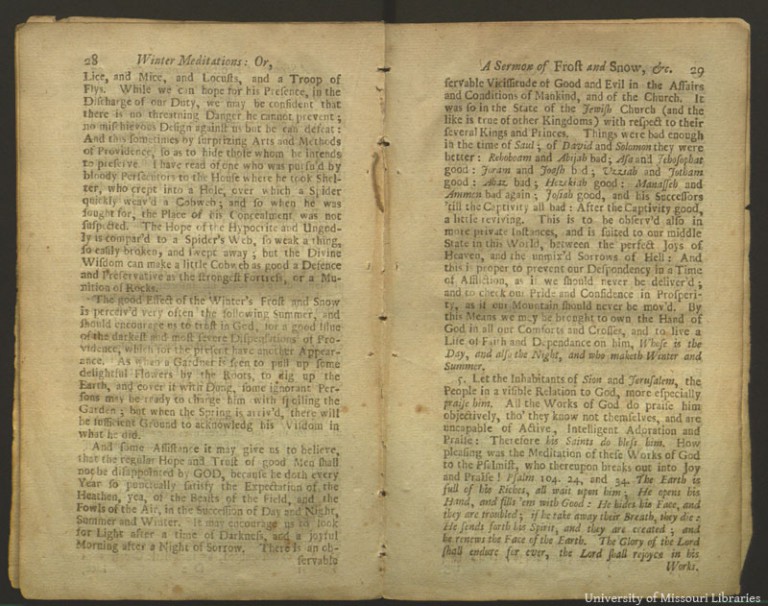 28 Winter Meditations: Or,
Lice, and Mice, and Locusts, and a Troop of
Flys. While we can hope for his Presence, in the
Discharge of our Duty, we may be confident that
there is no threatning Danger he cannot prevent;
no mischievous Design against us but he can defeat:
And this sometimes by surprizing Arts and Methods
of Providence, so as to hide those whom he intends
to preserve. I have read of one who was pursu'd by
bloody Persecutors to the House where he took Shel-
ter, who crept into a Hole, over which a Spider
quickly weav'd a Cobweb; and so when he was
sought for, the Place of his Concealment was not
suspected. The Hope of the Hypocrite and Ungod-
ly is compar'd to a Spider's Web, so weak a thing,
so easily broken, and swept away; but the Divine
Wisdom can make a little Cobweb as good a Defence
and Preservative as the strongest Fortress, or a Mu-
nition of Rocks.
The good Effect of the Winter's Frost and Snow
is perceiv'd very often the following Summer, and
should encourage us to trust in God, for a good Issue
of the darkest and most severe Dispensations of Pro-
vidence, which for the present have another Appear-
ance. As when a Gardner is seen to pull up some
delightful Flowers by the Roots, to dig up the
Earth, and cover it with Dung, some ignorant Per-
sons may be ready to charge him with spoiling the
Garden; but when the Spring is arriv'd, there will
be sufficient Ground to acknowledg his Wisdom in
what he did.
And some Assistance it may give us to believe,
that the regular Hope and Trust of good Men shall
not be disappointed by GOD, because he doth every
Year so punctually satisfy the Expectation of the
Heathen, yea, of the Beasts of the Field, and the
Fowls of the Air, in the Succession of Day and Night,
Summer and Winter. It may encourage us to look
for Light after a time of Darkness, and a joyful
Morning after a Night of Sorrow. There is an ob-
servable
A Sermon of Frost and Snow, &c. 29
servable Vicissitude of Good and Evil in the Affairs
and Conditions of Mankind, and of the Church. It
was so in the State of the Jewish Church (and the
like is true of other Kingdoms) with respect to their
several Kings and Princes. Things were bad enough
in the time of Saul; of David and Solomon they were
better: Rehoboam and Abijah bad; Asa and Jehosophat
good: Joram and Joash bad; Uzziah and Jotham
good: Ahaz bad; Hezekiah good: Manasseh and
Ammon bad again; Josiah good, and his Successors
'till the Captivity all bad: After the Captivity good,
a little reviving. This is to be observ'd also in
more private Instances, and is suited to our middle
State in this World, between the perfect Joys of
Heaven, and the unmix'd Sorrows of Hell: And
this is proper to prevent our Despondency in a Time
of Affliction, as if we should never be deliver'd;
and to check our Pride and Confidence in Prosperi-
ty, as if our Mountain should never be mov'd. By
this Means we may be brought to own the Hand of
God in all our Comforts and Crosses, and to live a
Life of Faith and Dependance on him, Whose is the
Day, and also the Night, and who maketh Winter and
Summer.
5. Let the Inhabitants of Sion and Jerusalem, the
People in a visible Relation to God, more especially
praise him. All the Works of God do praise him
objectively, tho' they know not themselves, and are
uncapable of Active, Intelligent Adoration and
Praise: Therefore his Saints do bless him. How
pleasing was the Meditation of these Works of God
to the Psalmist, who thereupon breaks out into Joy
and Praise! Psalm 104. 24, and 34. The Earth is
full of his Riches, all wait upon him; He opens his
Hand, and fills 'em with Good: He hides his Face, and
they are troubled; if he take away their Breath, they die:
He sends forth his Spirit, and they are created; and
he renews the Face of the Earth. The Glory of the Lord
shall endure for ever, the Lord shall rejoyce in his
Works.
University of Missouri Libraries